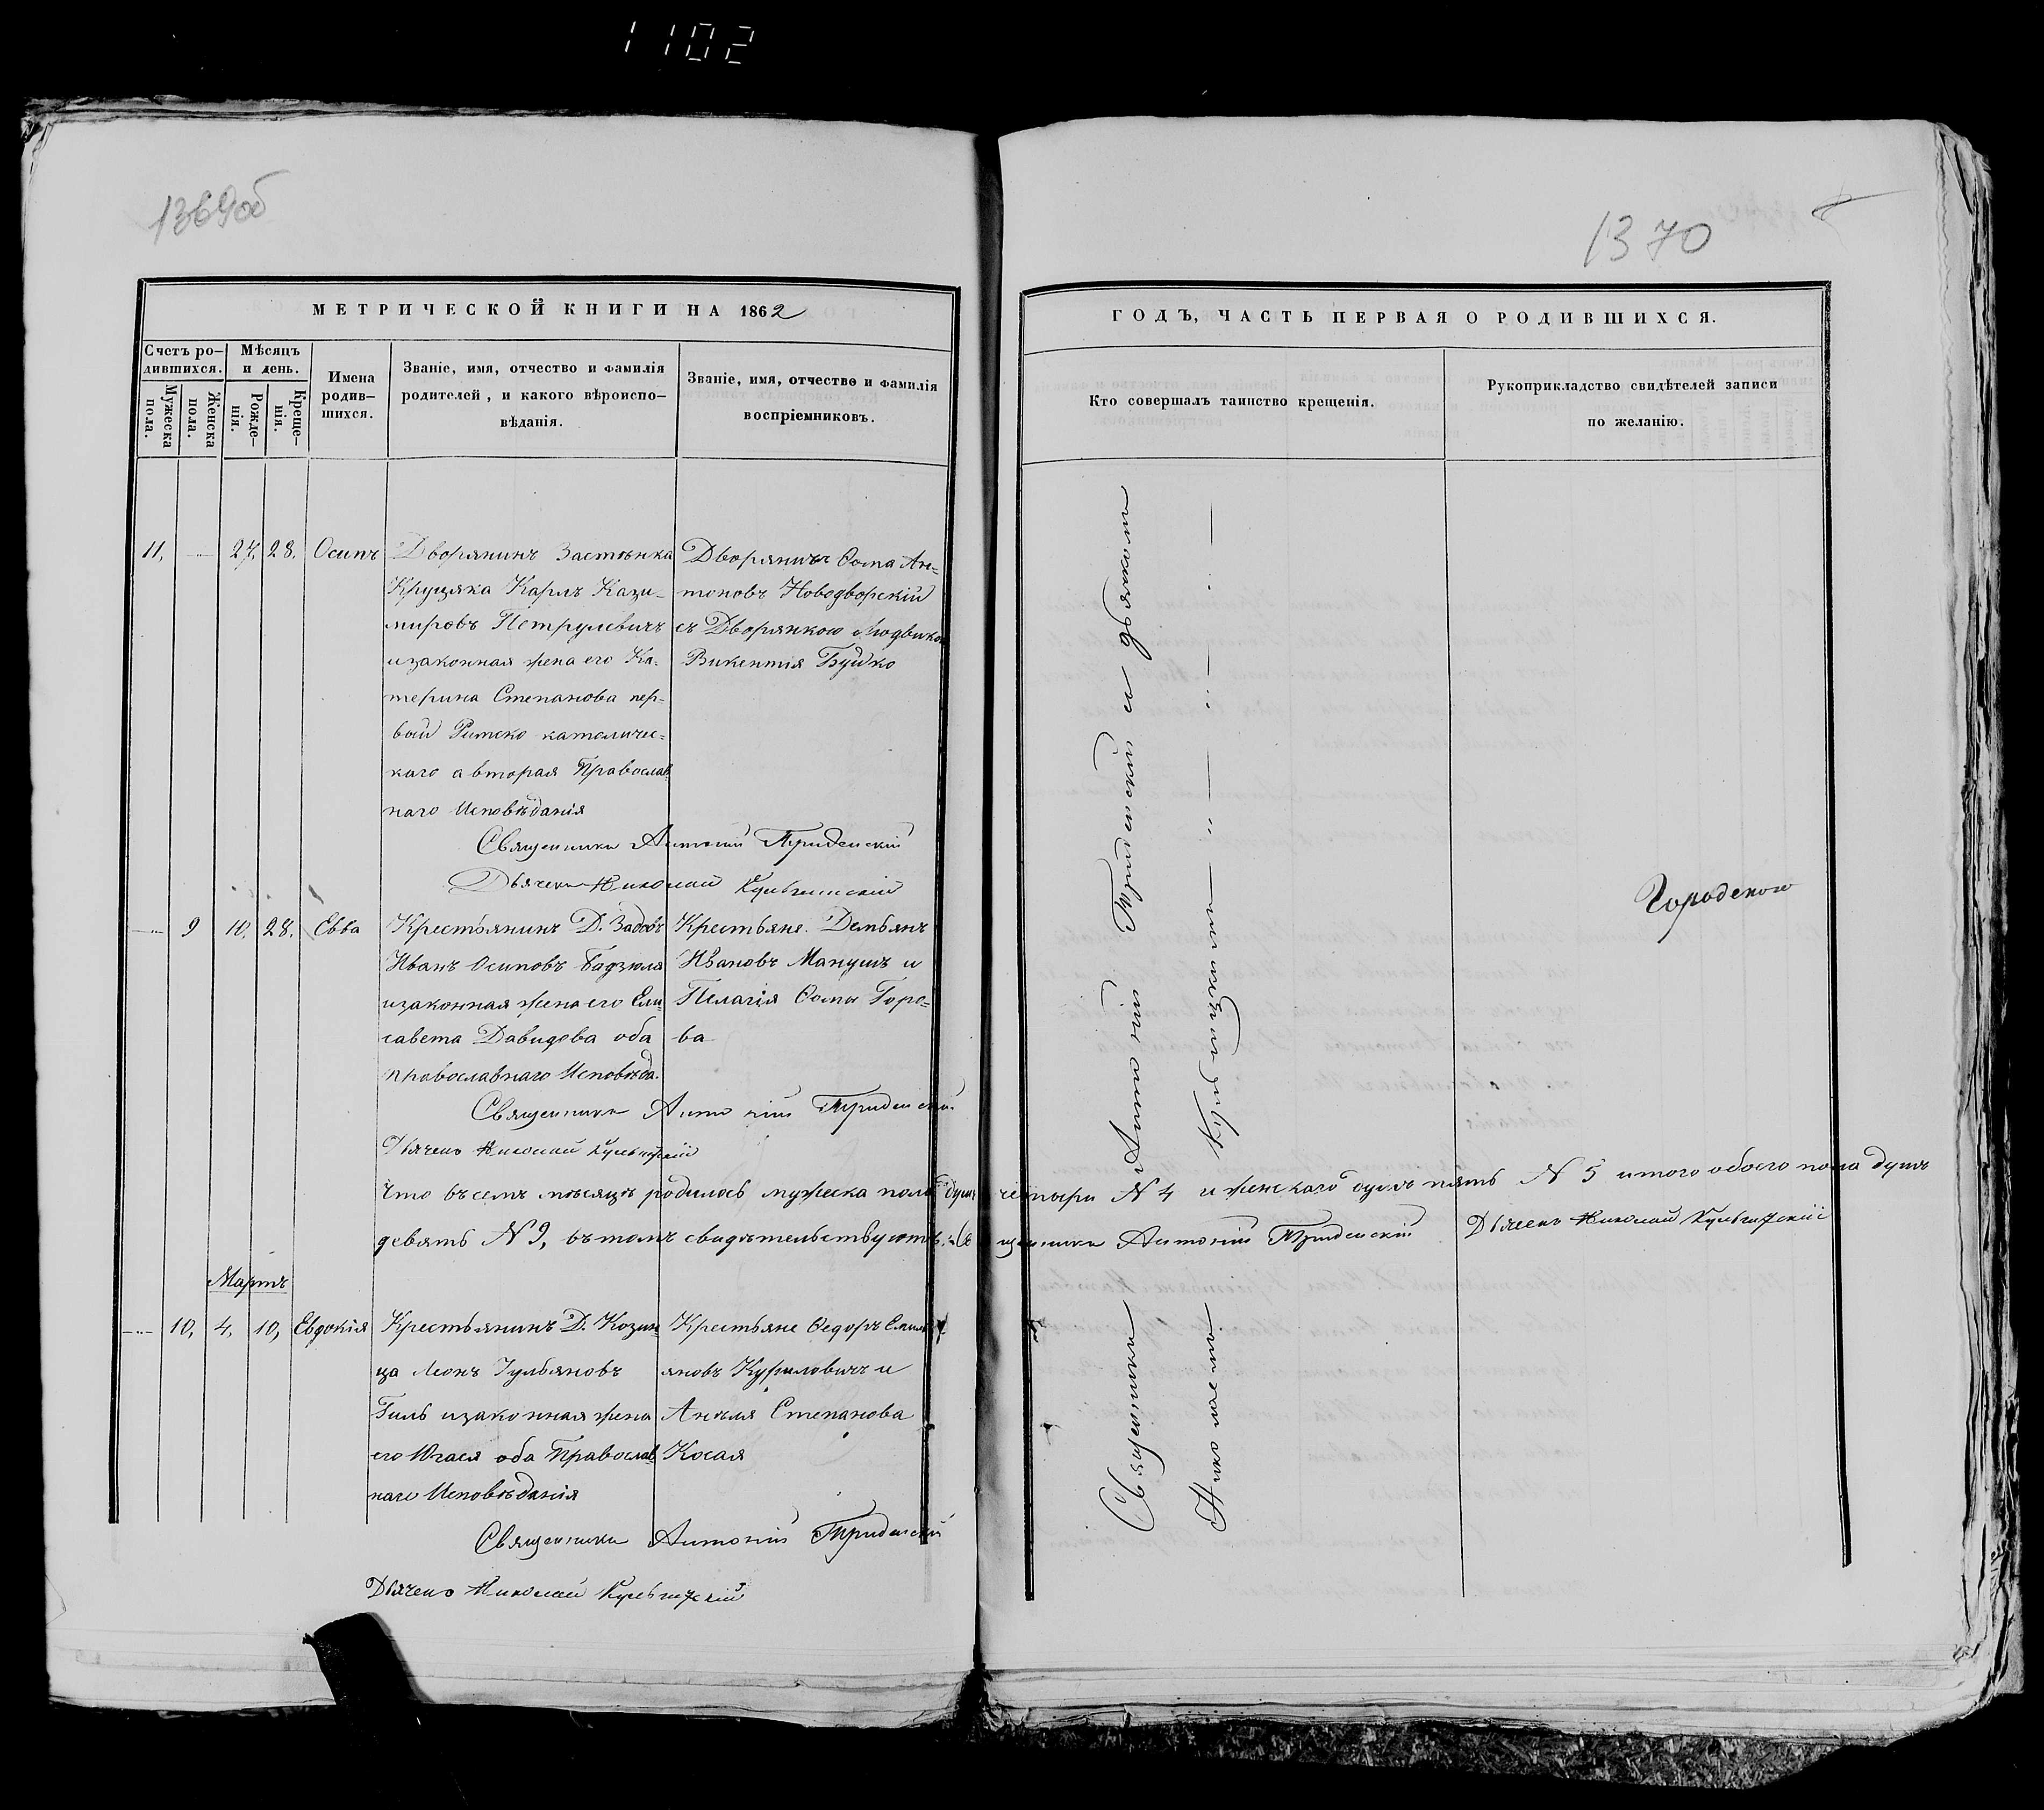 1102
1369об
1370
МЕТРИЧЕСКОЙ КНИГИ НА 1862
ГОДЪ, ЧАСТЬ ПЕРВАЯ О РОДИВШИХСЯ.
Счетъ ро-
дившихся.
Мужеска
пола.
Женска
пола.
Мѣсяцъ
и день.
Рожде-
нія.
Креще-
нія.
Имена
родив-
шихся.
Званіе, имя, отчество и фамилія
родителей, и какого вѣроиспо-
вѣданія.
Званіе, имя, отчество и фамилія
воспріемниковъ.
Кто совершалъ таинство крещенія.
Рукоприкладство свидѣтелей записи
по желанію.
11, 27, 28. Осипъ
Дворянинъ Застѣнка
Круцяка Карлъ Кази-
мировъ Петрулевичъ
и законная жена его Ка-
терина Степанова пер-
вый Римско католичес-
каго а вторая Православ
наго Исповѣданія
Дворянинъ Ѳома Ан-
тоновъ Новодворскій
съ Дворянкою Людвикою
Викентія Буйко
Священникъ Антоній
Дьячекъ Николай
9 10, 28. Евва
Крестьянинъ Д.
Иванъ Осиповъ Бадзюля
и законная жена его Ели
савета Давидова оба
православнаго Исповѣда.
Крестьяне Демьянъ
Ивановъ Манушъ и
Пелагія Ѳомы Горо-
ва
Священникъ Антоній
Дьячекъ Николай
Что въ семъ мѣсяцѣ родилось мужеска пола душъ четыри N 4 и женскаго душъ пять N 5 итого обоего пола душъ
девять N 9, въ томъ свидѣтельствуютъ: Священникъ Антоній Дьячекъ Николай
Мартъ
10, 4, 10, Евдокія
Крестьянинъ Д. Козин
ца Леонъ Гулбяновъ
Гиль и законная жена
его Югася оба Православ
наго Исповѣданія
Крестьяне Ѳедоръ Емиль
яновъ Куриловичъ и
Анѣля Степанова
Косая
Священникъ Антоній
Дьячекъ Николай
Священникъ Антоній съ дьячкомъ
Николаемъ